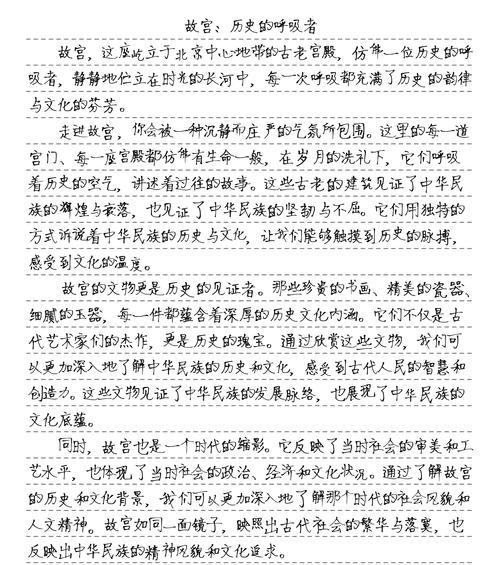 故宫：历史的呼吸者
故宫，这座屹立于北京中心地带的古老宫殿，仿佛一位历史的呼
吸者，静静地伫立在时光的长河中，每一次呼吸都充满了历史的韵律
与文化的芬芳。
走进故宫，你会被一种沉静而庄严的气氛所包围。这里的每一道
宫门、每一座宫殿都仿佛有生命一般，在岁月的洗礼下，它们呼吸
着历史的空气，讲述着过往的故事。这些古老的建筑见证了中华民
族的辉煌与衰落，也见证了中华民族的坚韧与不屈。它们用独特的
方式诉说着中华民族的历史与文化，让我们能够触摸到历史的脉搏，
感受到文化的温度。
故宫的文物更是历史的见证者。那些珍贵的书画、精美的瓷器、
细腻的玉器，每一件都蕴含着深厚的历史文化内涵。它们不仅是古
代艺术家们的杰作，更是历史的瑰宝。通过欣赏这些文物，我们可
以更加深入地了解中华民族的历史和文化，感受到古代人民的智慧和
创造力。这些文物见证了中华民族的发展脉络，也展现了中华民族的
文化底蕴。
同时，故宫也是一个时代的缩影。它反映了当时社会的审美和工
艺水平，也体现了当时社会的政治、经济和文化状况。通过了解故宫
的历史和文化背景，我们可以更加深入地了解那个时代的社会风貌和
人文精神。故宫如同一面镜子，映照出古代社会的繁华与落寞，也
反映出中华民族的精神风貌和文化追求。